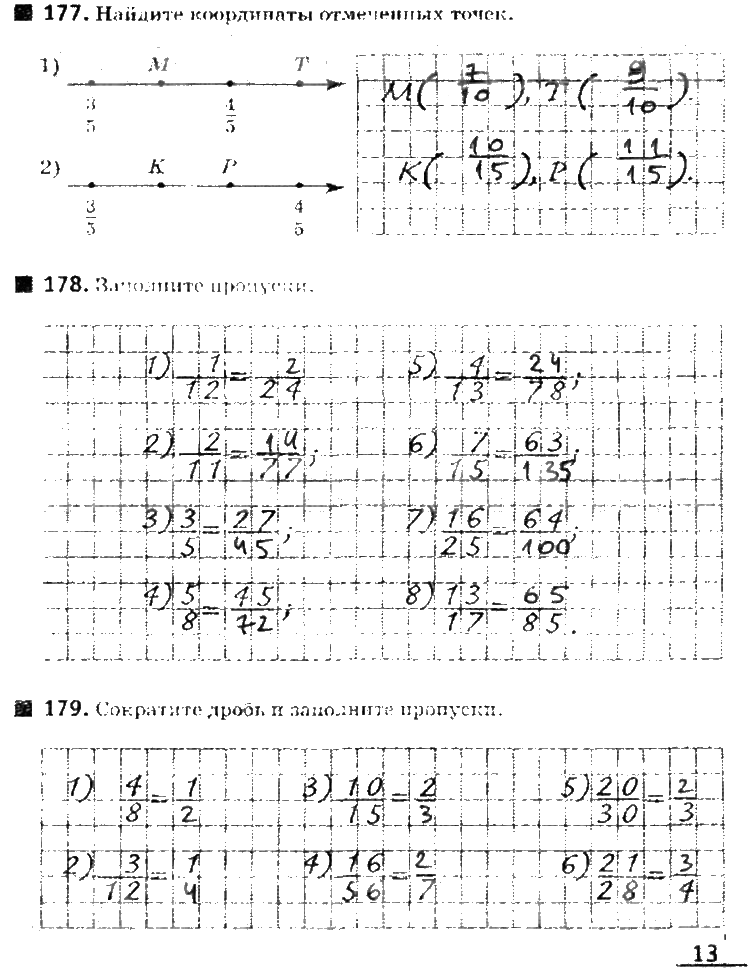 177. Найдите координаты отмеченных точек.
1) M T
3/5 4/5
M( 7/10 ), T( 9/10 ).
2) K P
3/5 4/5
K( 10/15 ), P( 11/15 ).
178. Заполните пропуски.
1) 1/12 = 2/24 5) 4/13 = 24/78;
2) 2/11 = 14/77; 6) 7/15 = 63/135;
3) 3/5 = 27/45; 7) 16/25 = 64/100;
4) 5/8 = 45/72; 8) 13/17 = 65/85.
179. Сократите дробь и заполните пропуски.
1) 4/8 = 1/2 3) 10/15 = 2/3 5) 20/30 = 2/3
2) 3/12 = 1/4 4) 16/56 = 2/7 6) 21/28 = 3/4
13